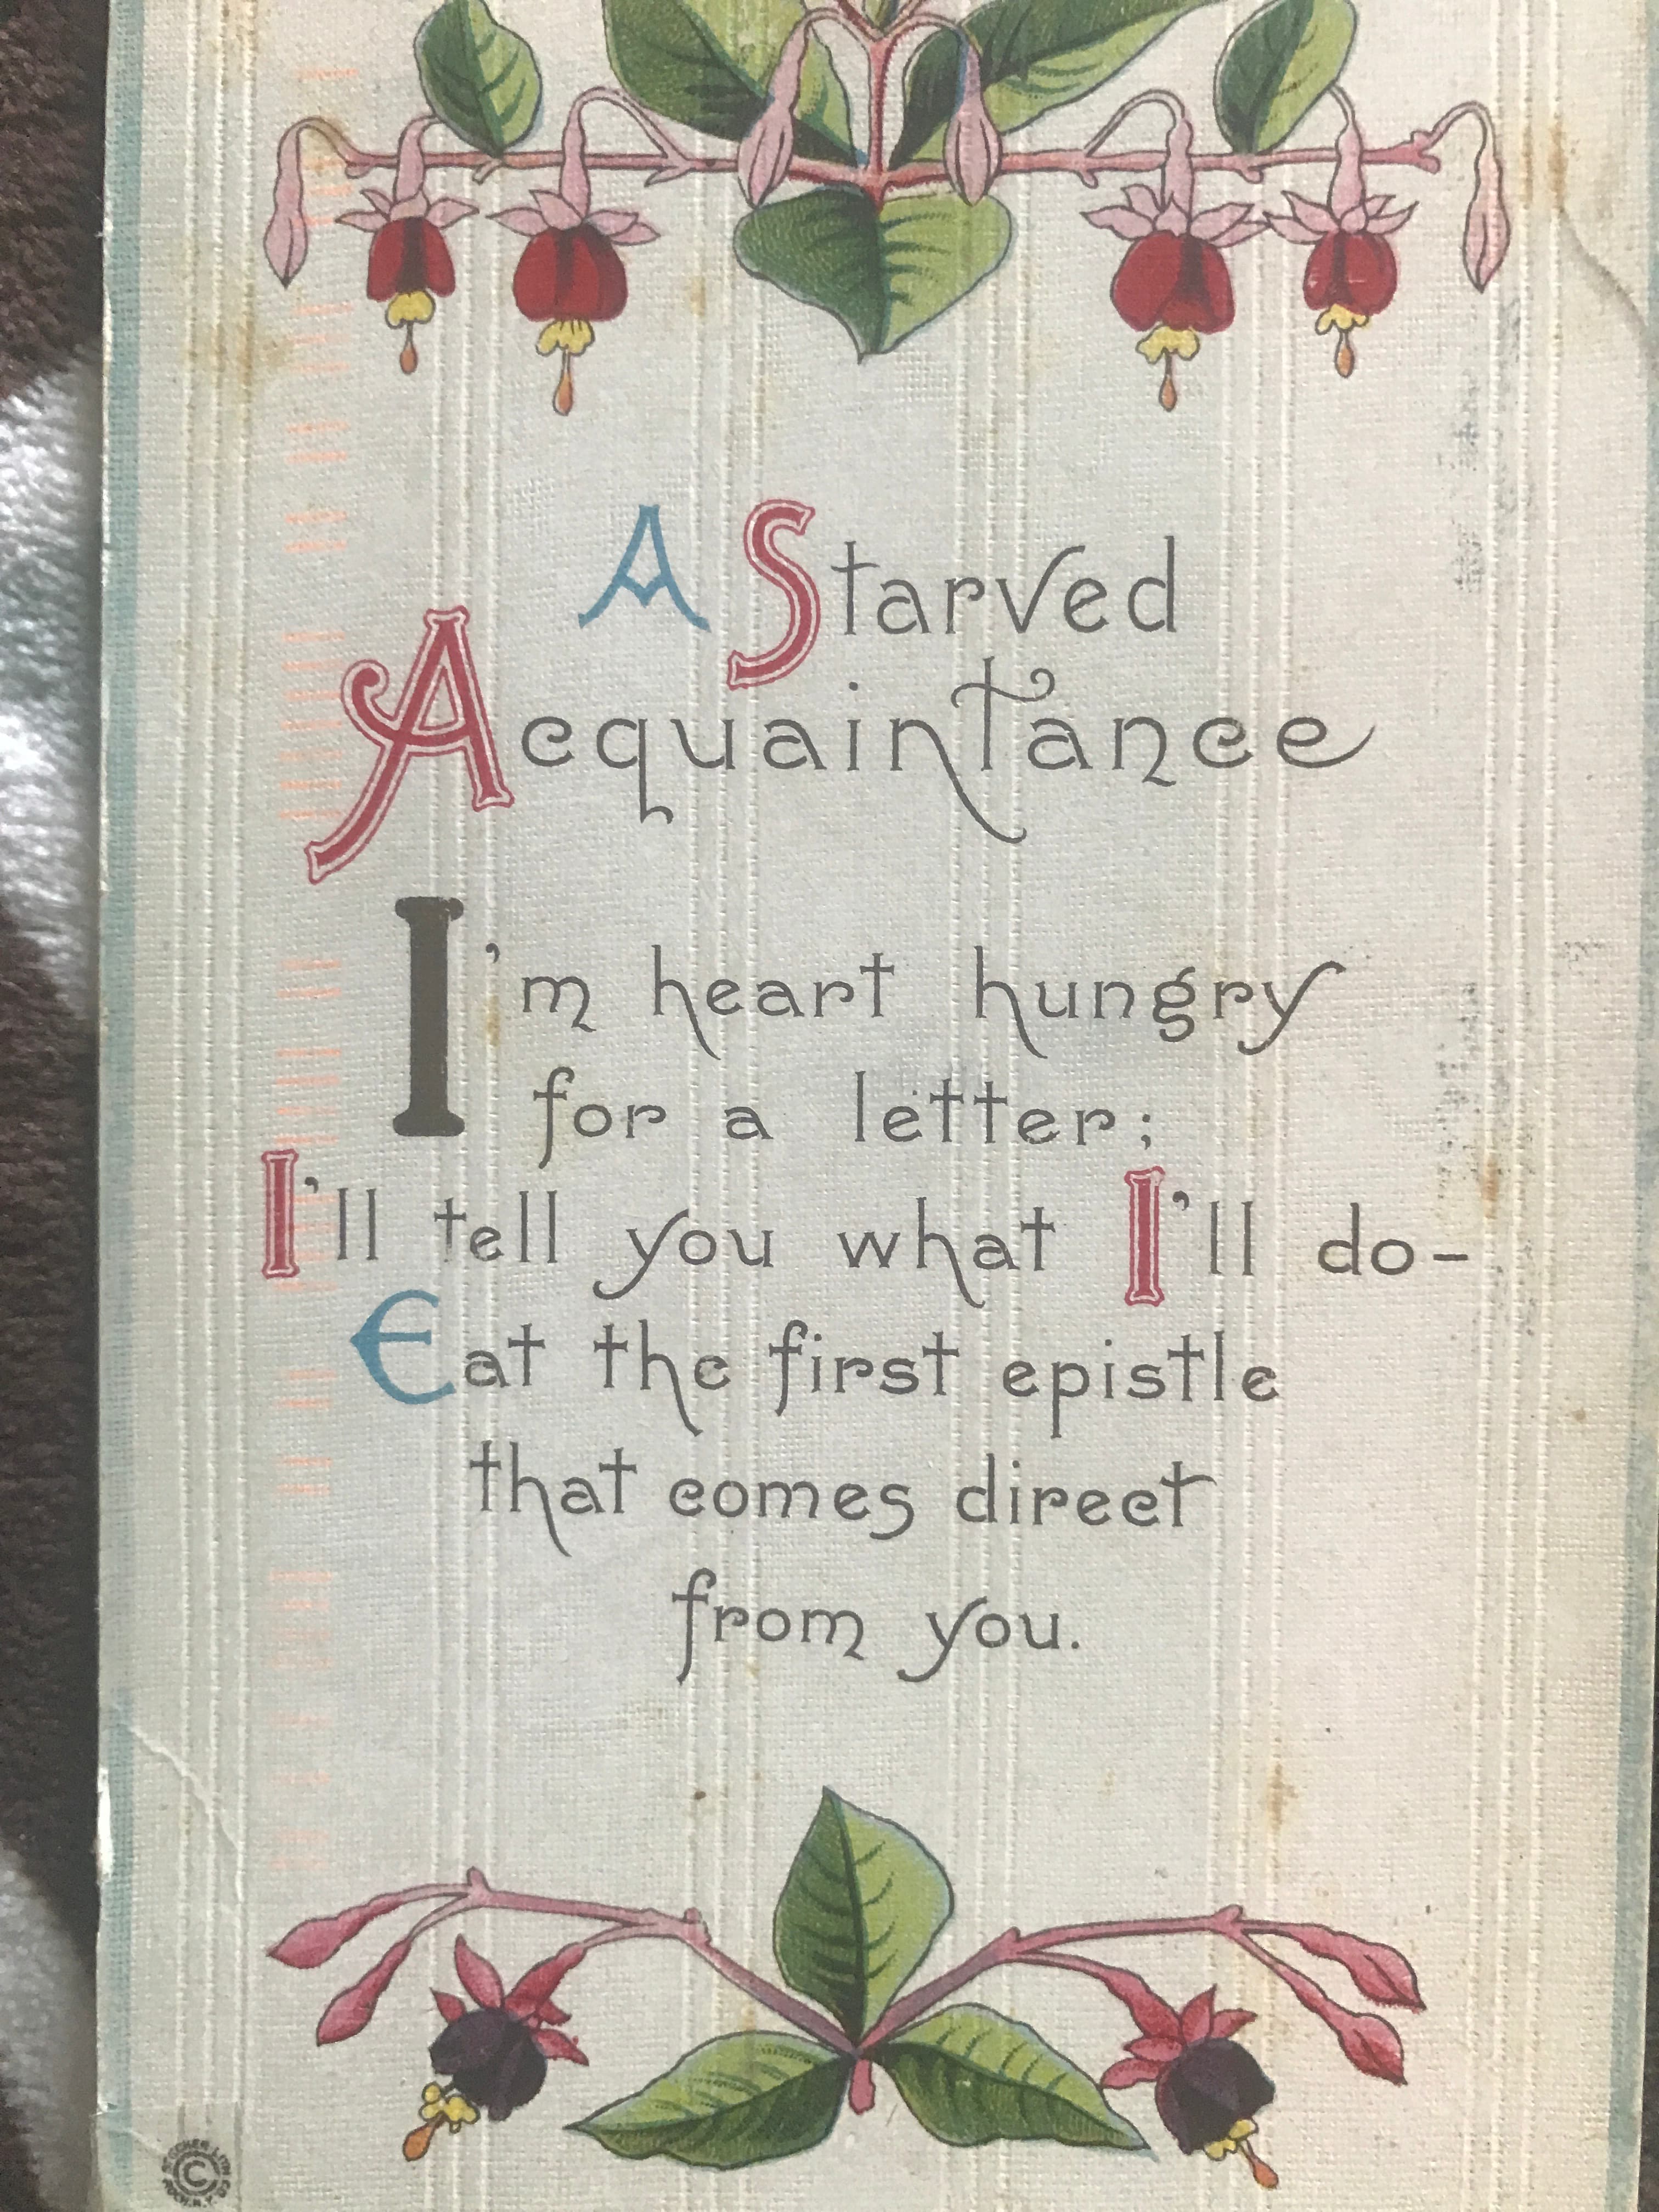 A Starved
Acquaintance
I'm heart hungry
for a letter;
I'll tell you what I'll do-
Eat the first epistle
that comes direct
from you.
STECHER LITH CO
ROCH. N.Y.
©